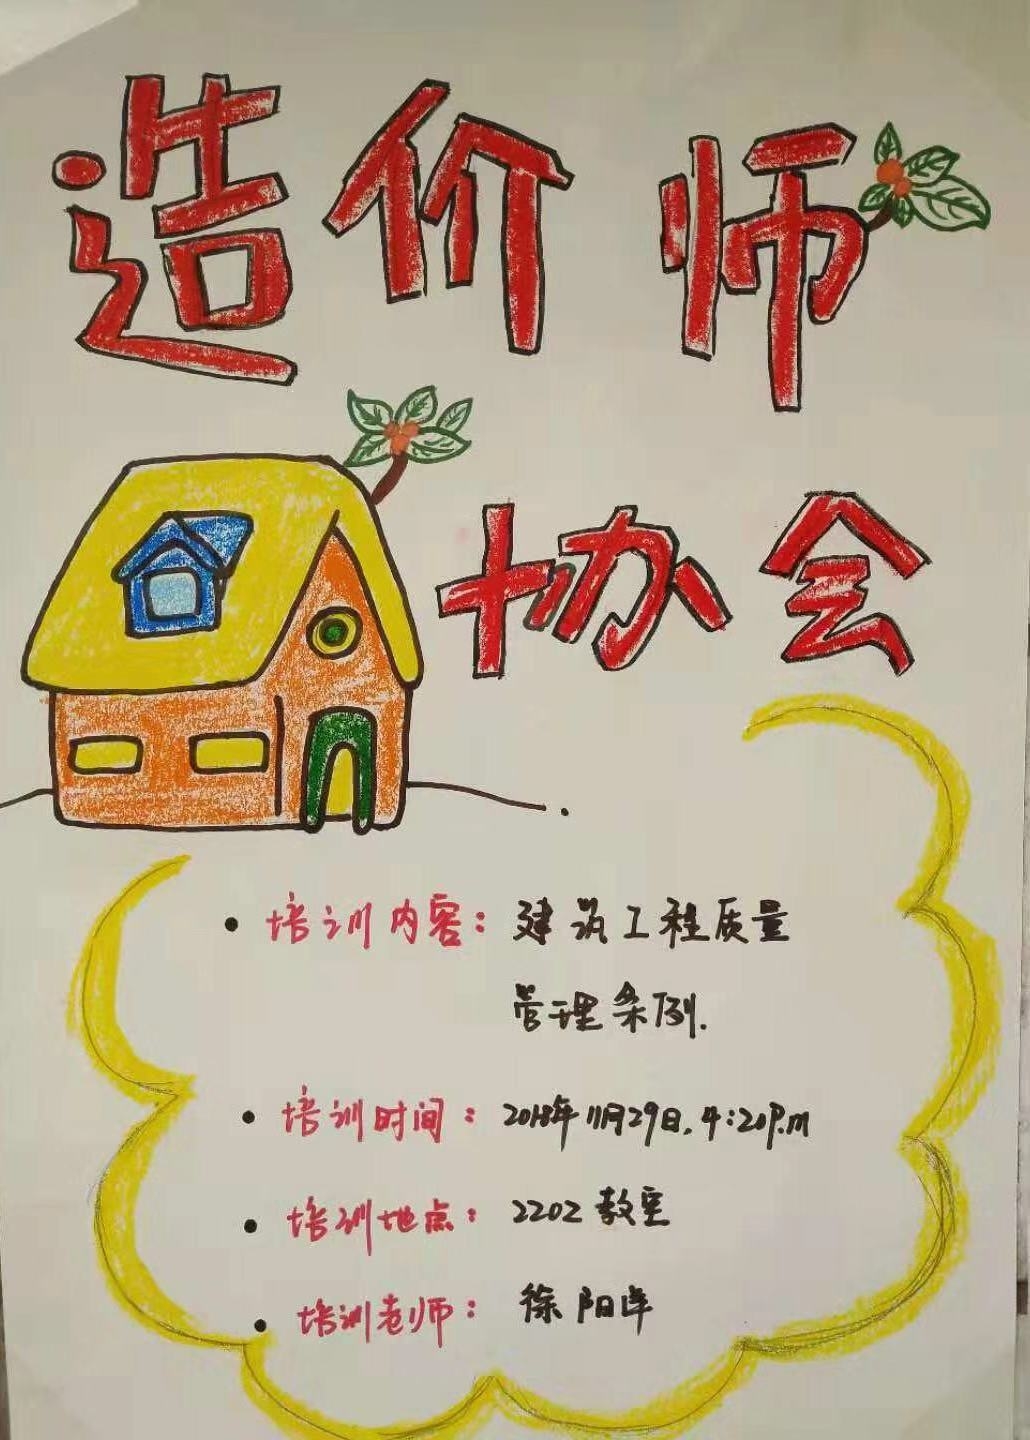 造价师
协会
• 培训内容：建筑工程质量
管理条例.
• 培训时间：2018年11月29日，4:20P.m
• 培训地点：2202教室
• 培训老师：徐阳